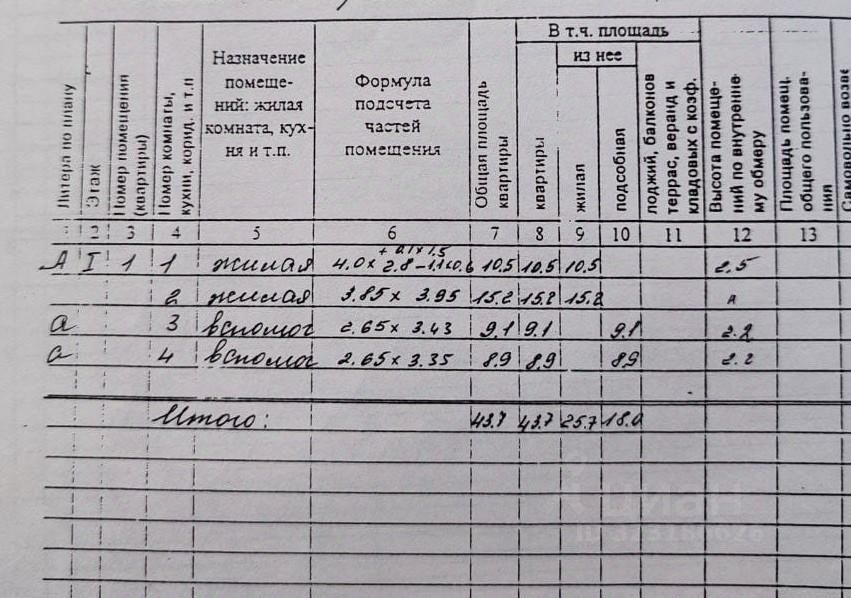 В т.ч. площадь
из нее
Литера по плану
Этаж
Номер помещения (квартиры)
Номер комнаты, кухни, корид. и т.п
Назначение
помеще-
ний: жилая
комната, кух-
ня и т.п.
Формула
подсчета
частей
помещения
Общая площадь квартиры
квартиры
жилая
подсобная
лоджий, балконов террас, веранд и кладовых с коэф.
Высота помеще- ний по внутренне му обмеру
Площадь помещ. общего пользова- ния
Самовольно возве
1 2 3 4 5 6 7 8 9 10 11 12 13
+ 0.1 x 1.5
А I 1 1 жилая 4.0 x 2.8 - 1.1x0.6 10.5 10.5 10.5 2.5
2 жилая 3.85 x 3.95 15.2 15.2 15.2
а 3 вспомог 2.65 x 3.43 9.1 9.1 9.1 2.2
а 4 вспомог 2.65 x 3.35 8.9 8.9 8.9 2.2
Итого: 43.7 43.7 25.7 18.0
циан